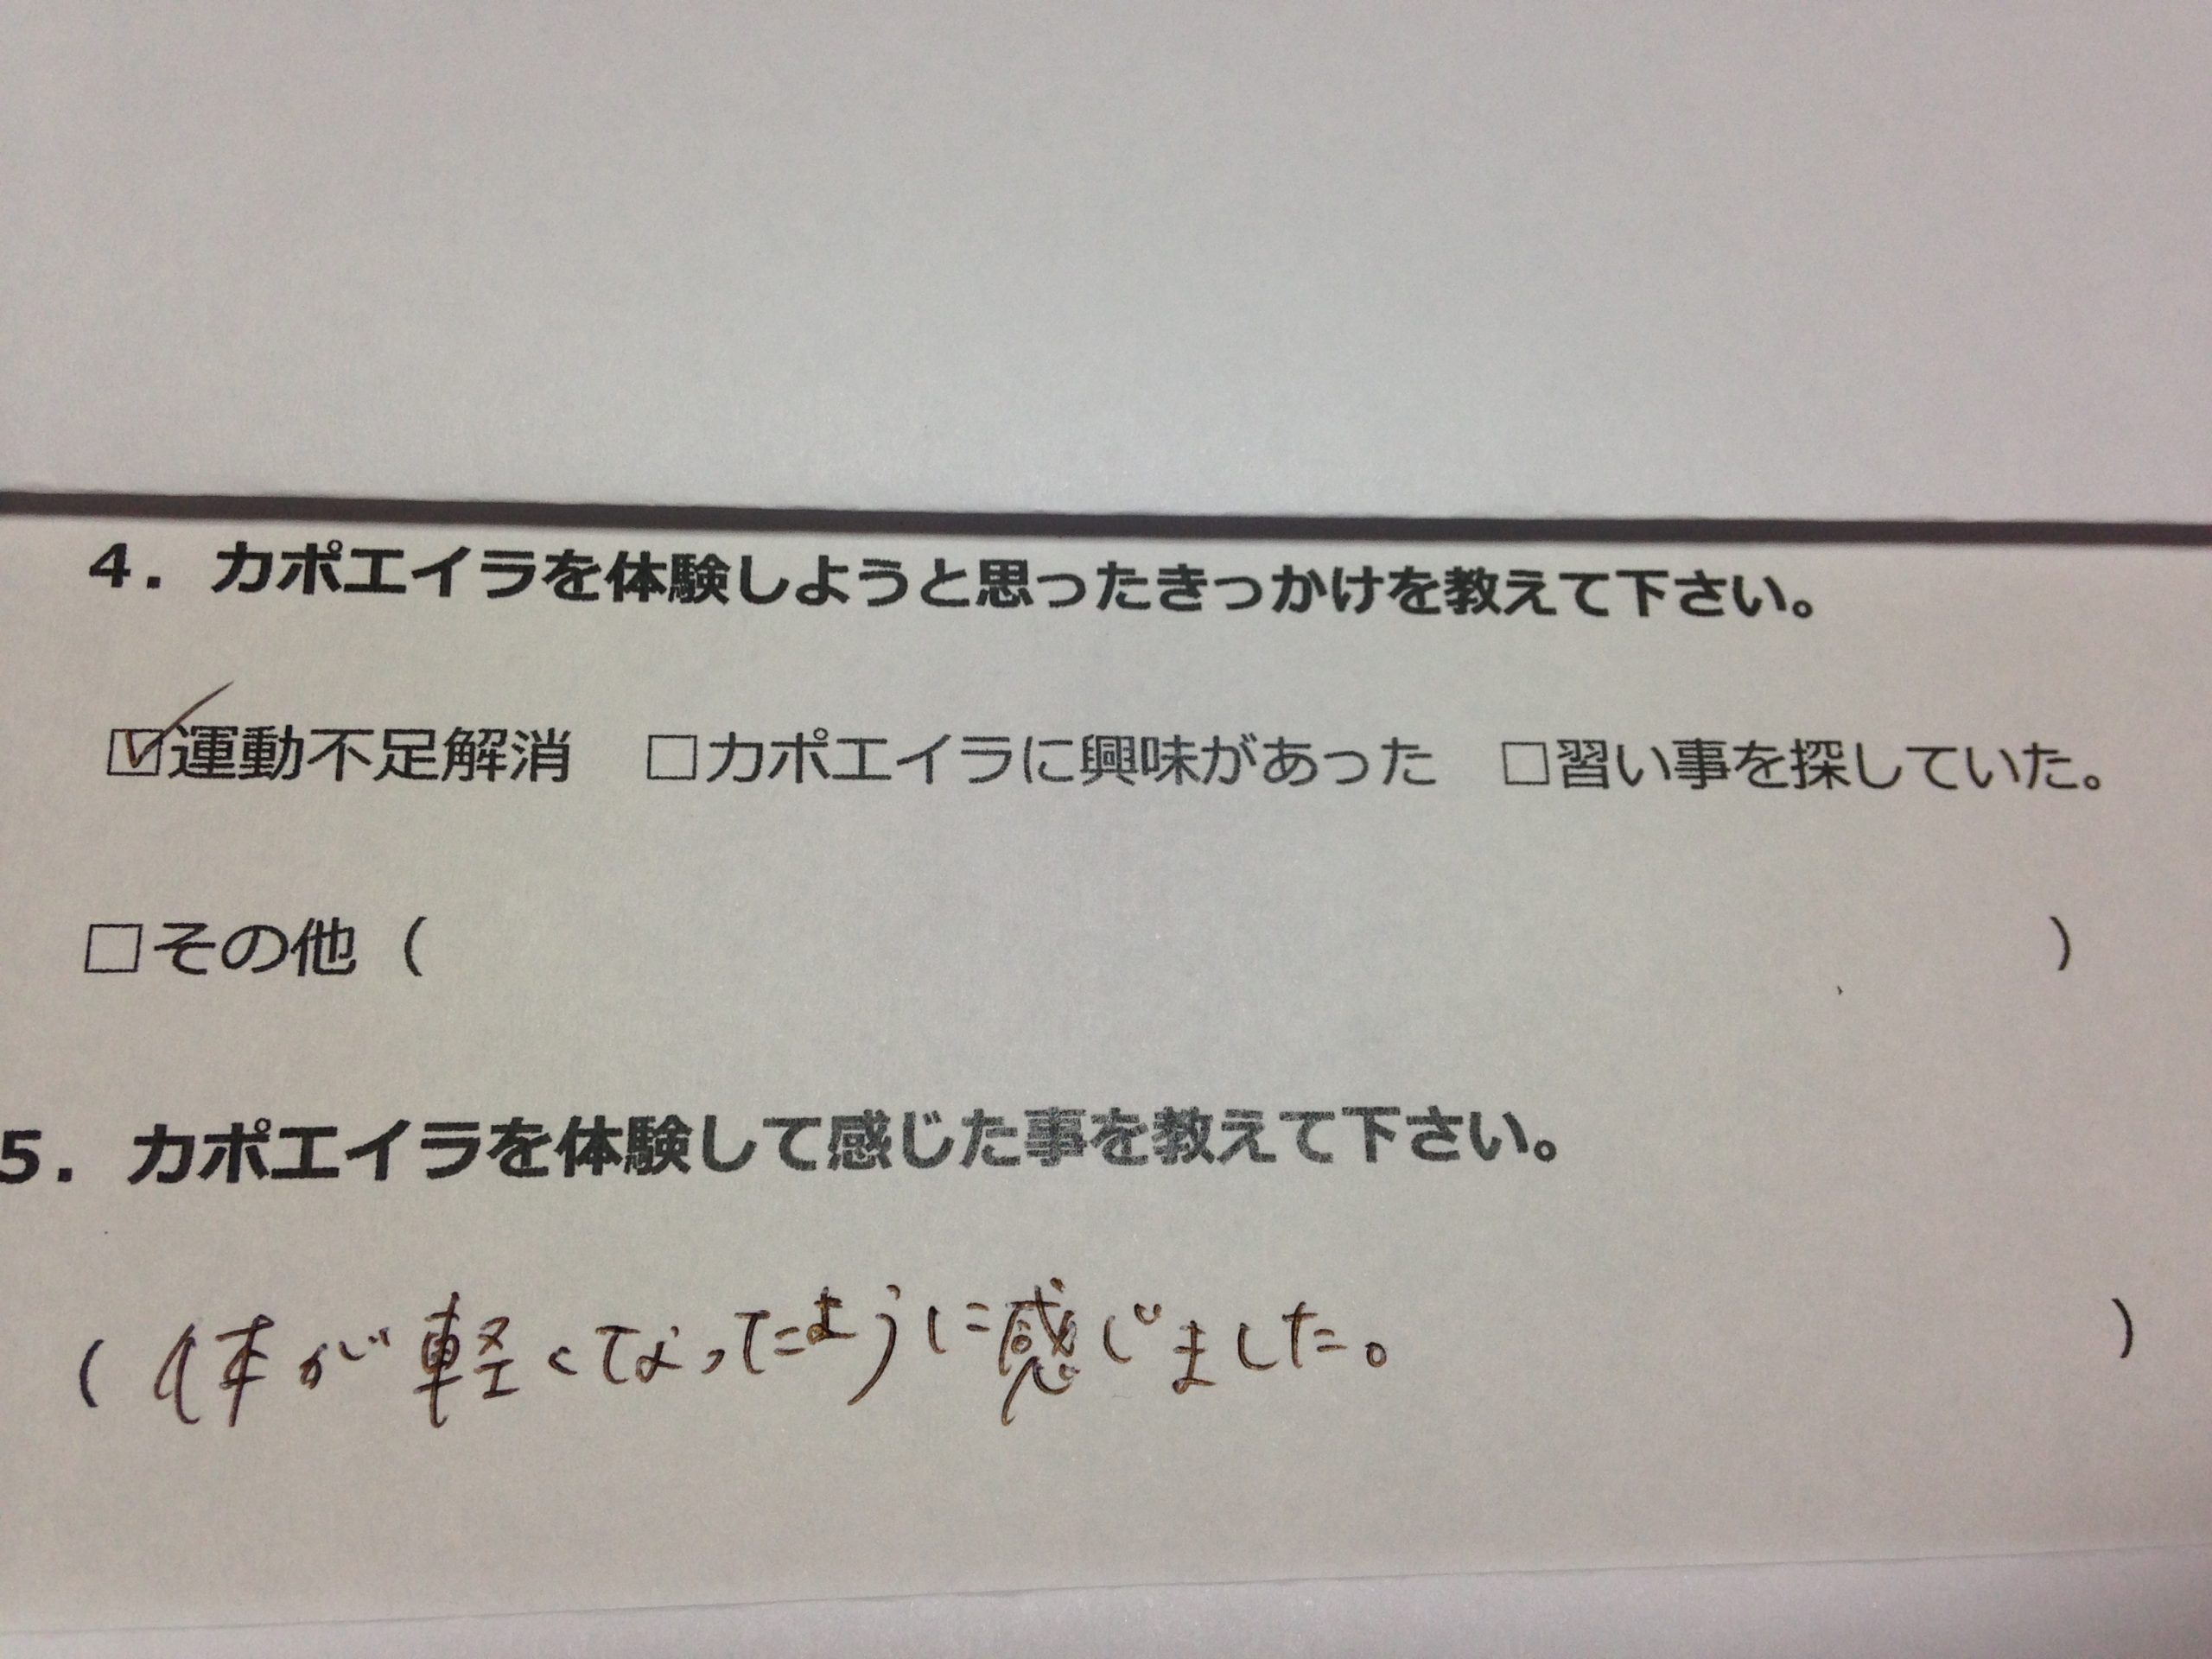 4．カポエイラを体験しようと思ったきっかけを教えて下さい。
☑運動不足解消　□カポエイラに興味があった　□習い事を探していた。
□その他（　　　　　　　　　　　　　　　　　　　　　　　　　）
5．カポエイラを体験して感じた事を教えて下さい。
（体が軽くなったように感じました。　　　　　　　　　　）